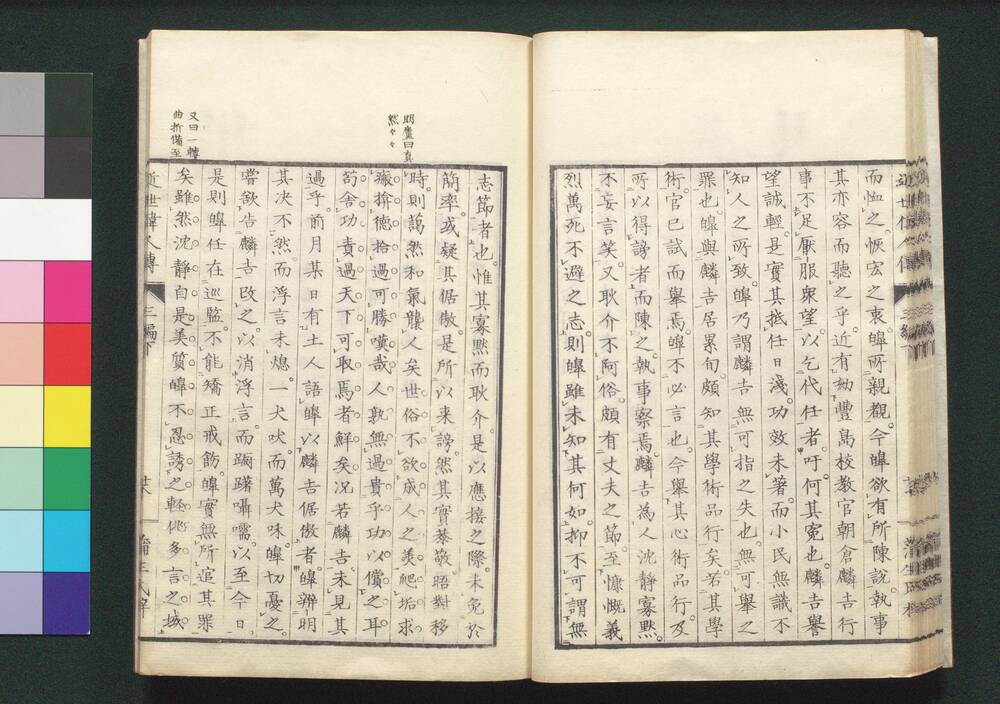 而恤之恢宏之衷皥所親觀今皥欲有所陳說執事
其亦容而聽之乎近有劾豐島校教官朝倉麟吉行
事不足厭服衆望以乞代任者吁何其冤也麟吉譽
望誠輕是實其抵任日淺功效未著而小民無識不
知人之所致皥乃謂麟吉無可指之失也無可舉之
罪也皥與麟吉居累旬頗知其學術品行矣若其學
術官已試而舉焉皥不必言也今舉其心術品行及
所以得謗者而陳之執事察焉麟吉為人沈靜寡默
不妄言笑又耿介不阿俗頗有丈夫之節至慷慨義
烈萬死不避之志則皥雖未知其何如抑不可謂無
志節者也惟其寡默而耿介是以應接之際未免於
簡率或疑其倨傲是所以来謗然其實恭敬晤對移
時則藹然和氣襲人矣世俗不欲成人之美爬垢求
瘢揜德拾過可勝嘆哉人孰無過貴乎功以償之耳
苟舍功責過天下可取焉者鮮矣况若麟吉未見其
過乎前月某日有土人語皥以麟吉倨傲者皥辨明
其决不然而浮言未熄一犬吠而萬犬吠皥切憂之
嘗欲告麟吉改之以消浮言而踟躇囁嚅以至今日
是則皥任在巡監不能矯正戒飭皥實無所逭其罪
矣雖然沈靜自是美質皥不忍誘之輕佻多言之域
近世偉人傳
三編下
蒲生氏梓
明廬曰真
然々々
又曰一轉
曲折備至